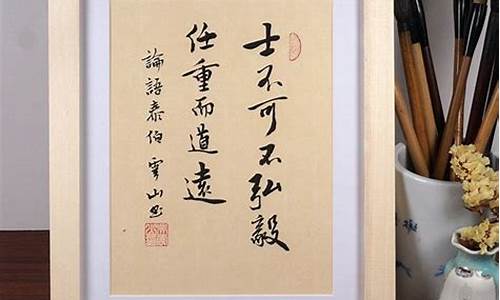 士不可不弘毅
任重而道遠
論語泰伯雲山書